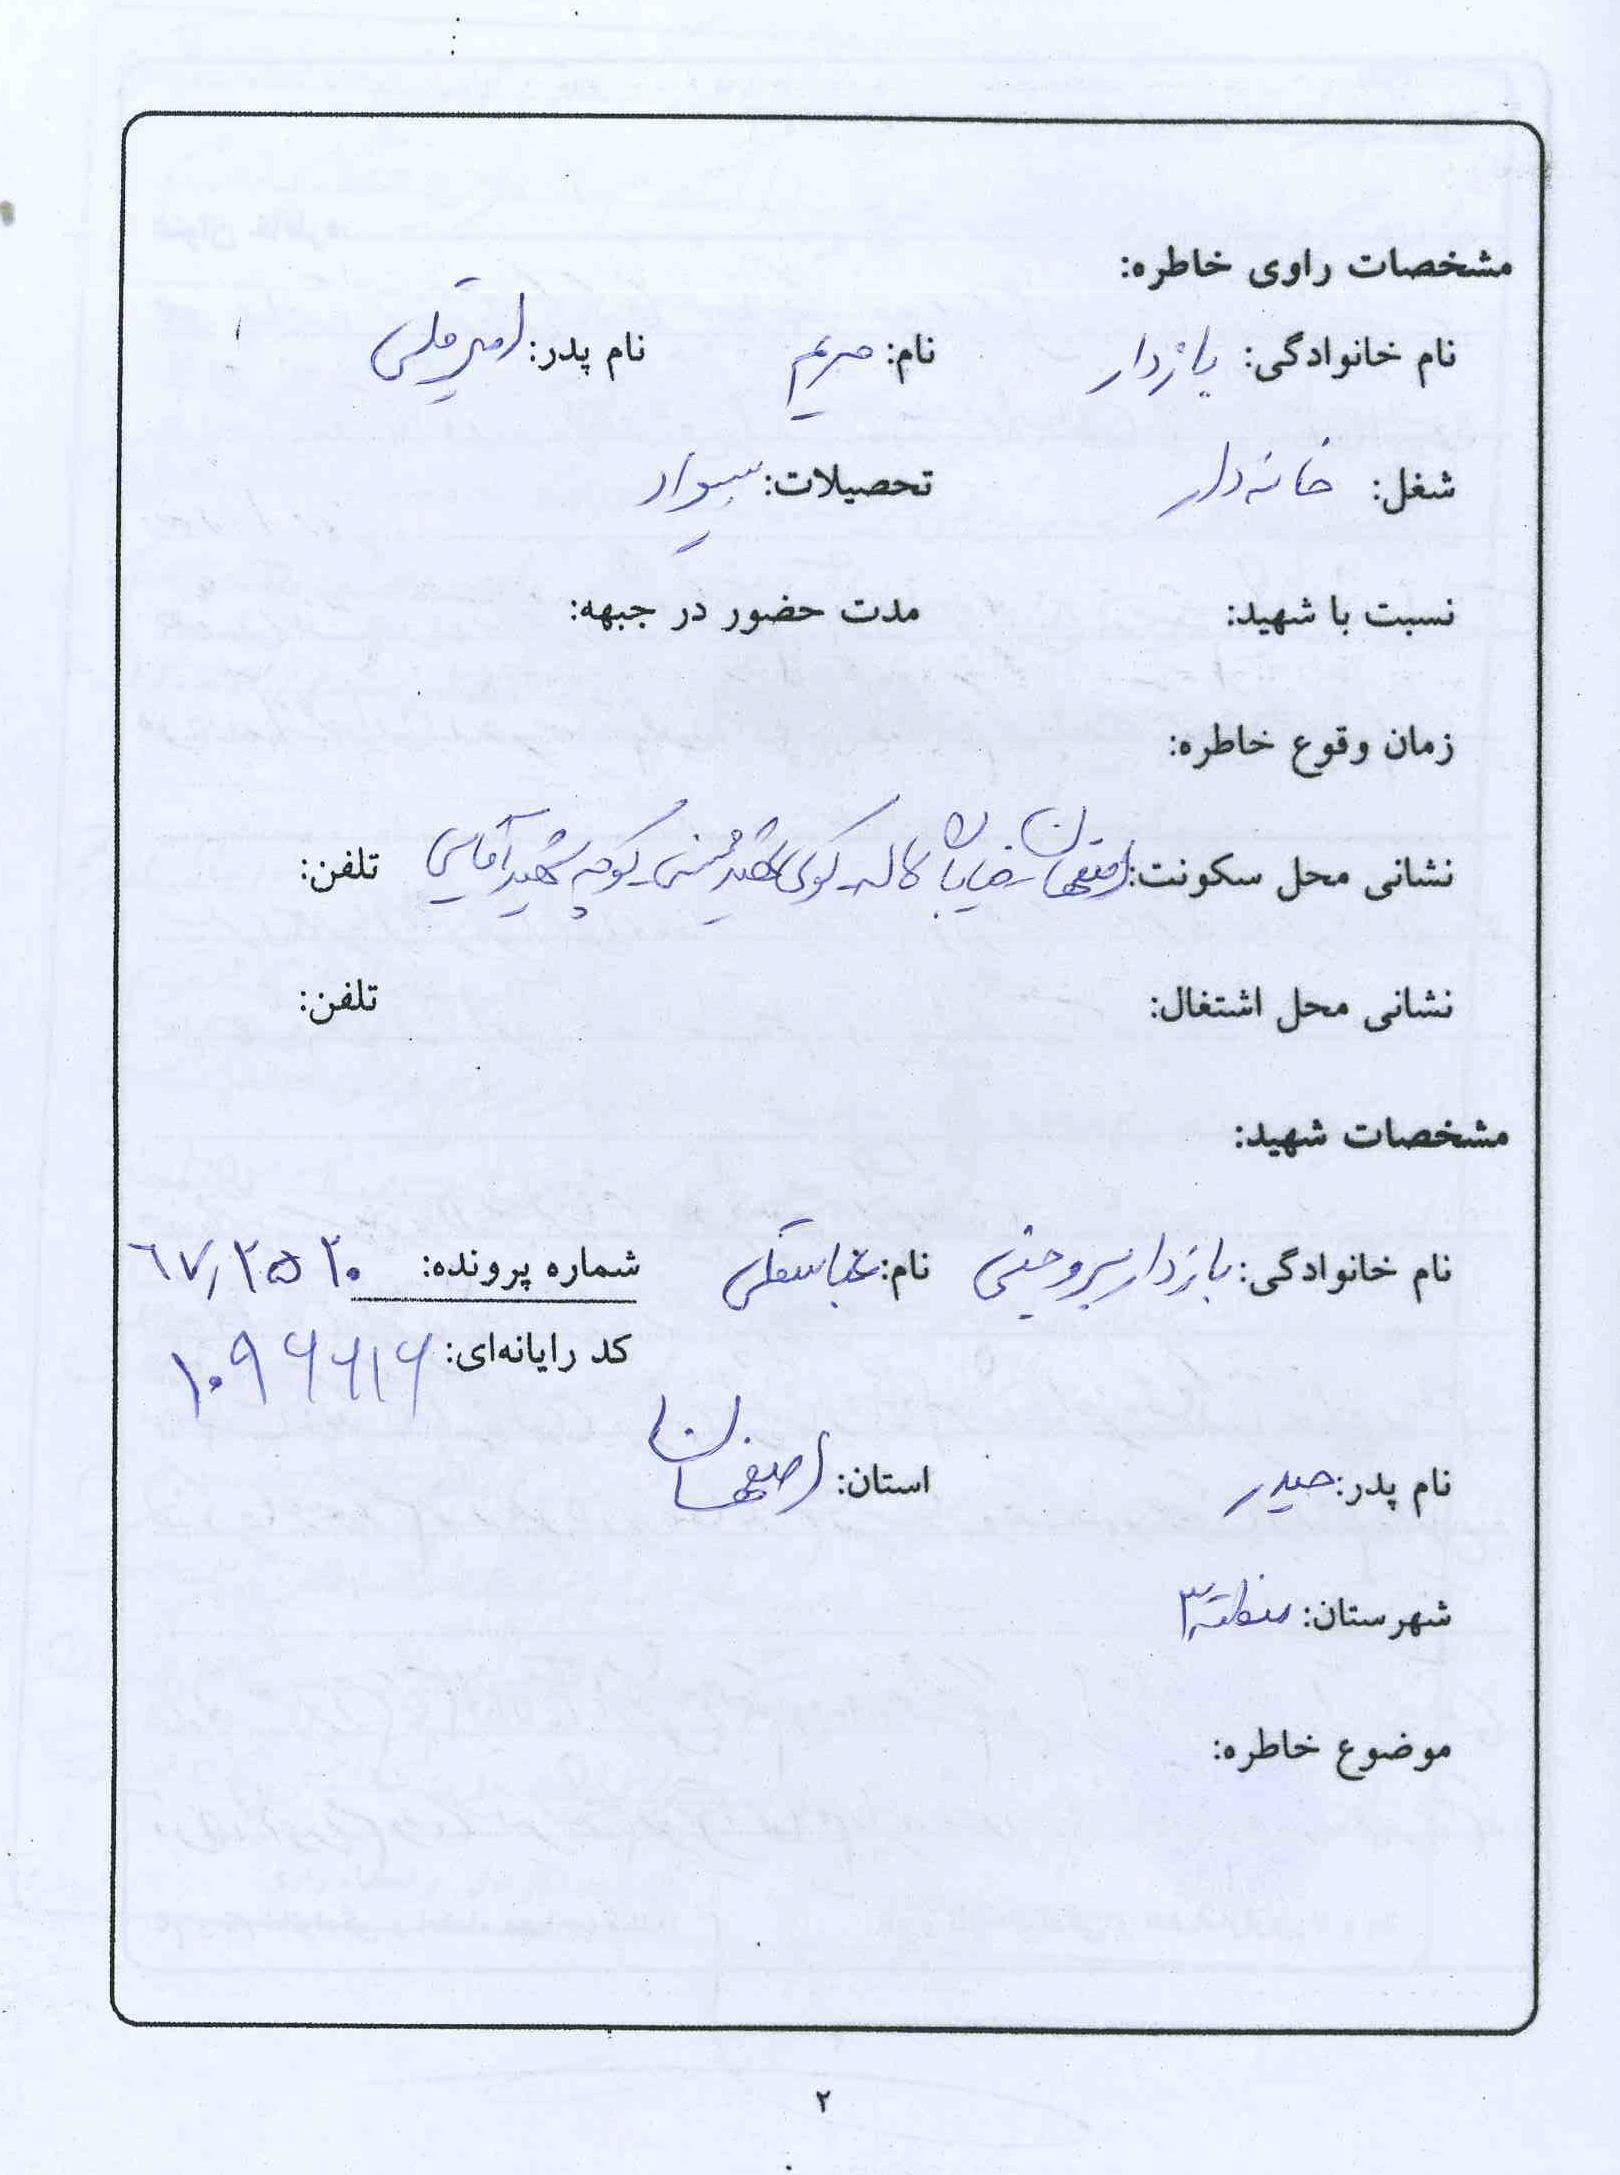 مشخصات راوی خاطره:
نام خانوادگی: بازدار نام: مریم نام پدر: امیرقلی
شغل: خانه دار تحصیلات: بیسواد
نسبت با شهید: مدت حضور در جبهه:
زمان وقوع خاطره:
نشانی محل سکونت: اصفهان خیابان لاله کوی شهید کوچه شهید آقایی تلفن:
نشانی محل اشتغال: تلفن:
مشخصات شهید:
نام خانوادگی: بازدار بروجنی نام: عباسقلی شماره پرونده: ۶۷٫۲۵۲۰
کد رایانه‌ای: ۱۰۹۶۶۱۶
نام پدر: حیدر استان: اصفهان
شهرستان: منطقه ۳
موضوع خاطره:
۲